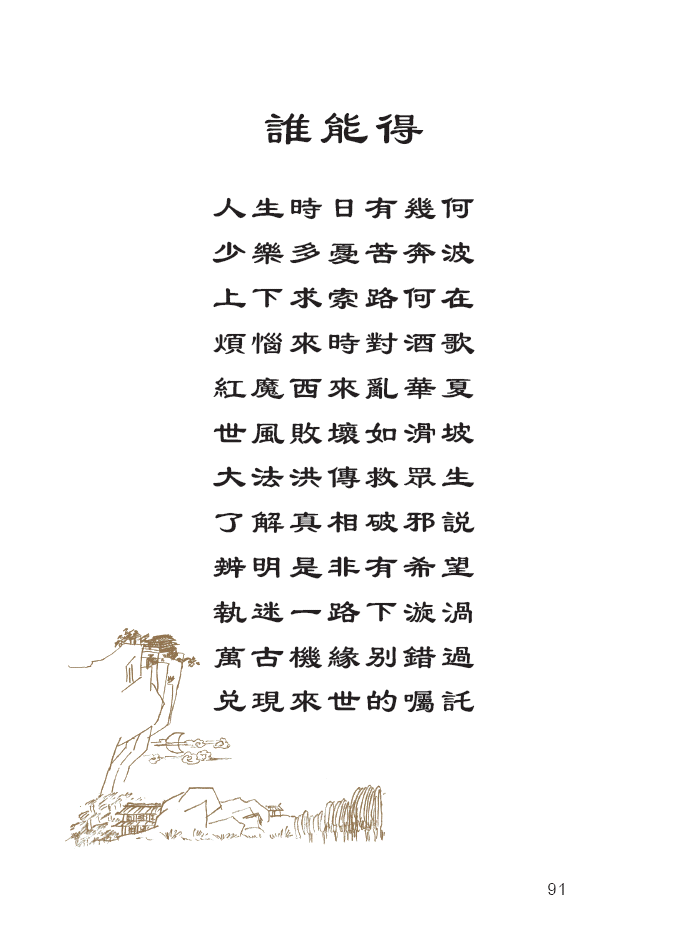 誰能得
人生時日有幾何
少樂多憂苦奔波
上下求索路何在
煩惱來時對酒歌
紅魔西來亂華夏
世風敗壞如滑坡
大法洪傳救眾生
了解真相破邪説
辨明是非有希望
執迷一路下漩渦
萬古機緣別錯過
兑現來世的囑託
91